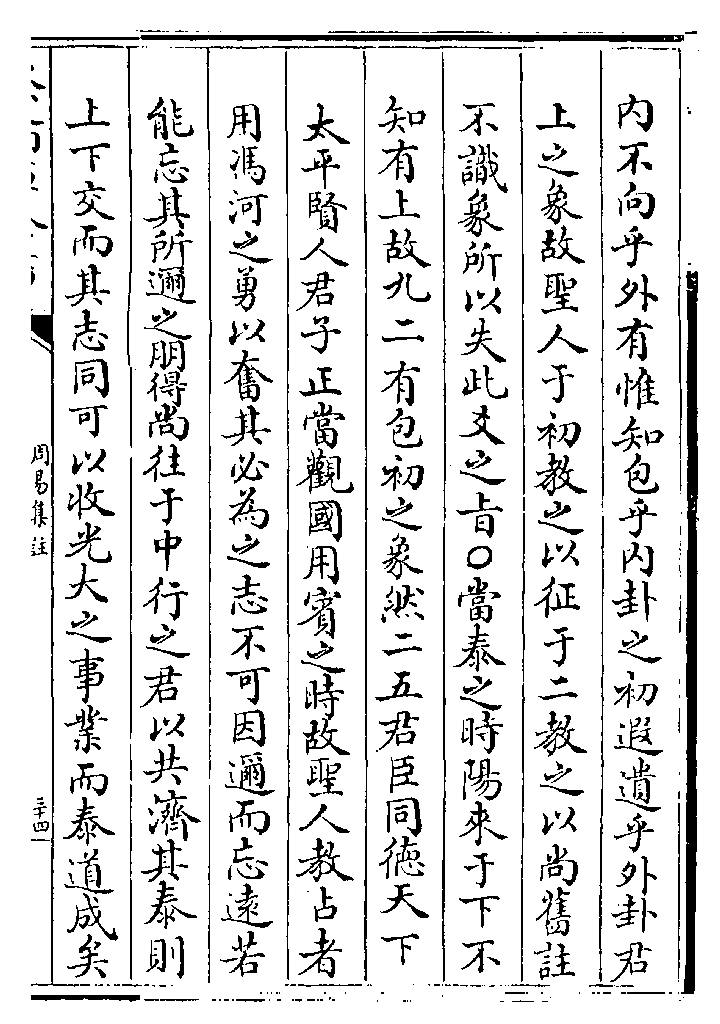 内不向乎外有惟知包乎内卦之初遐遺乎外卦君
上之象故聖人于初教之以征于二教之以尚舊註
不識象所以失此爻之旨○當泰之時陽來于下不
知有上故九二有包初之象然二五君臣同德天下
太平賢人君子正當觀國用賓之時故聖人教占者
用馮河之勇以奮其必為之志不可因邇而忘遠若
能忘其所邇之朋得尚往于中行之君以共濟其泰則
上下交而其志同可以收光大之事業而泰道成矣
周易集註
三十四